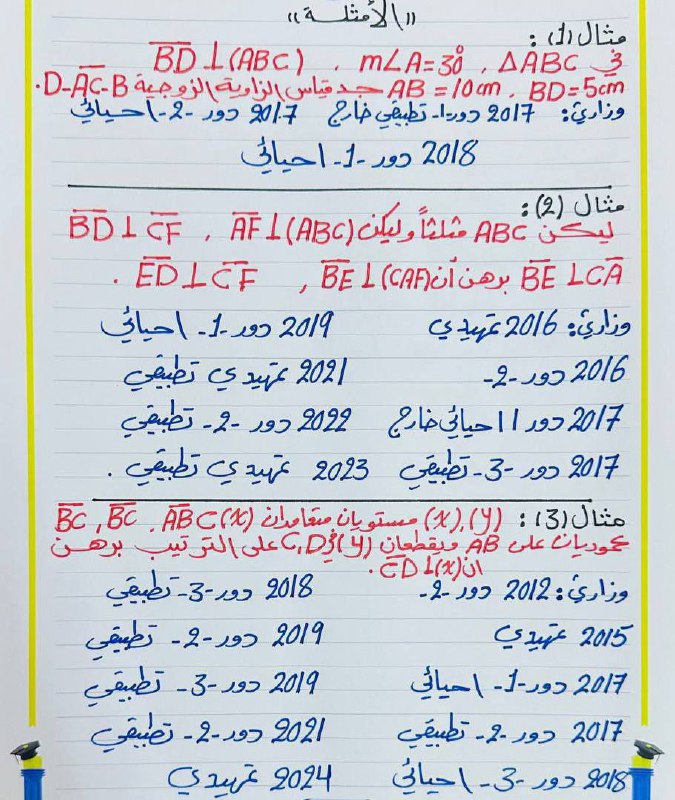 ((الأمثلة))
مثال (1) :
في ΔABC ، m∠A=30° ، BD⊥(ABC)
BD=5cm ، AB=10cm جد قياس الزاوية الزوجية D-AC-B.
وزاري: 2017 دور-1- تطبيقي خارج 2017 دور -2- احيائي
2018 دور -1- احيائي
مثال (2) :
ليكن ABC مثلثاً وليكن AF⊥(ABC) ، BD⊥CF
BE⊥CA برهن أن BE⊥(CAF) ، ED⊥CF .
وزاري: 2016 تمهيدي 2019 دور -1- احيائي
2016 دور -2- 2021 تمهيدي تطبيقي
2017 دور 1 احيائي خارج 2022 دور -2- تطبيقي
2017 دور -3- تطبيقي 2023 تمهيدي تطبيقي .
مثال (3) : (X),(Y) مستويان متعامدان ABC(X) ، BC ، BC
عموديان على AB ويقطعان (Y) في C,D على الترتيب برهن
ان CD⊥(X) .
وزاري: 2012 دور -2- 2018 دور -3- تطبيقي
2015 تمهيدي 2019 دور -2- تطبيقي
2017 دور -1- احيائي 2019 دور -3- تطبيقي
2017 دور -2- تطبيقي 2021 دور -2- تطبيقي
2018 دور -3- احيائي 2024 تمهيدي